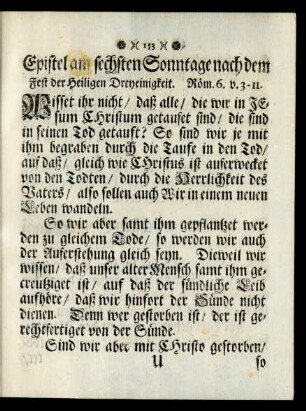 153
Epistel am sechsten Sonntage nach dem
Fest der Heiligen Dreyeinigkeit. Röm. 6. v. 3-11.
Wisset ihr nicht/ daß alle/ die wir in JE-
sum CHristum getaufet sind/ die sind
in seinen Tod getauft? So sind wir je mit
ihm begraben durch die Taufe in den Tod/
auf daß/ gleich wie CHristus ist auferwecket
von den Todten/ durch die Herrlichkeit des
Vaters/ also sollen auch Wir in einem neuen
Leben wandeln.
So wir aber samt ihm gepflantzet wer-
den zu gleichem Tode/ so werden wir auch
der Auferstehung gleich seyn. Dieweil wir
wissen/ daß unser alter Mensch samt ihm ge-
creutziget ist/ auf daß der sündliche Leib
aufhöre/ daß wir hinfort der Sünde nicht
dienen. Denn wer gestorben ist/ der ist ge-
rechtfertiget von der Sünde.
Sind wir aber mit CHristo gestorben/
U so